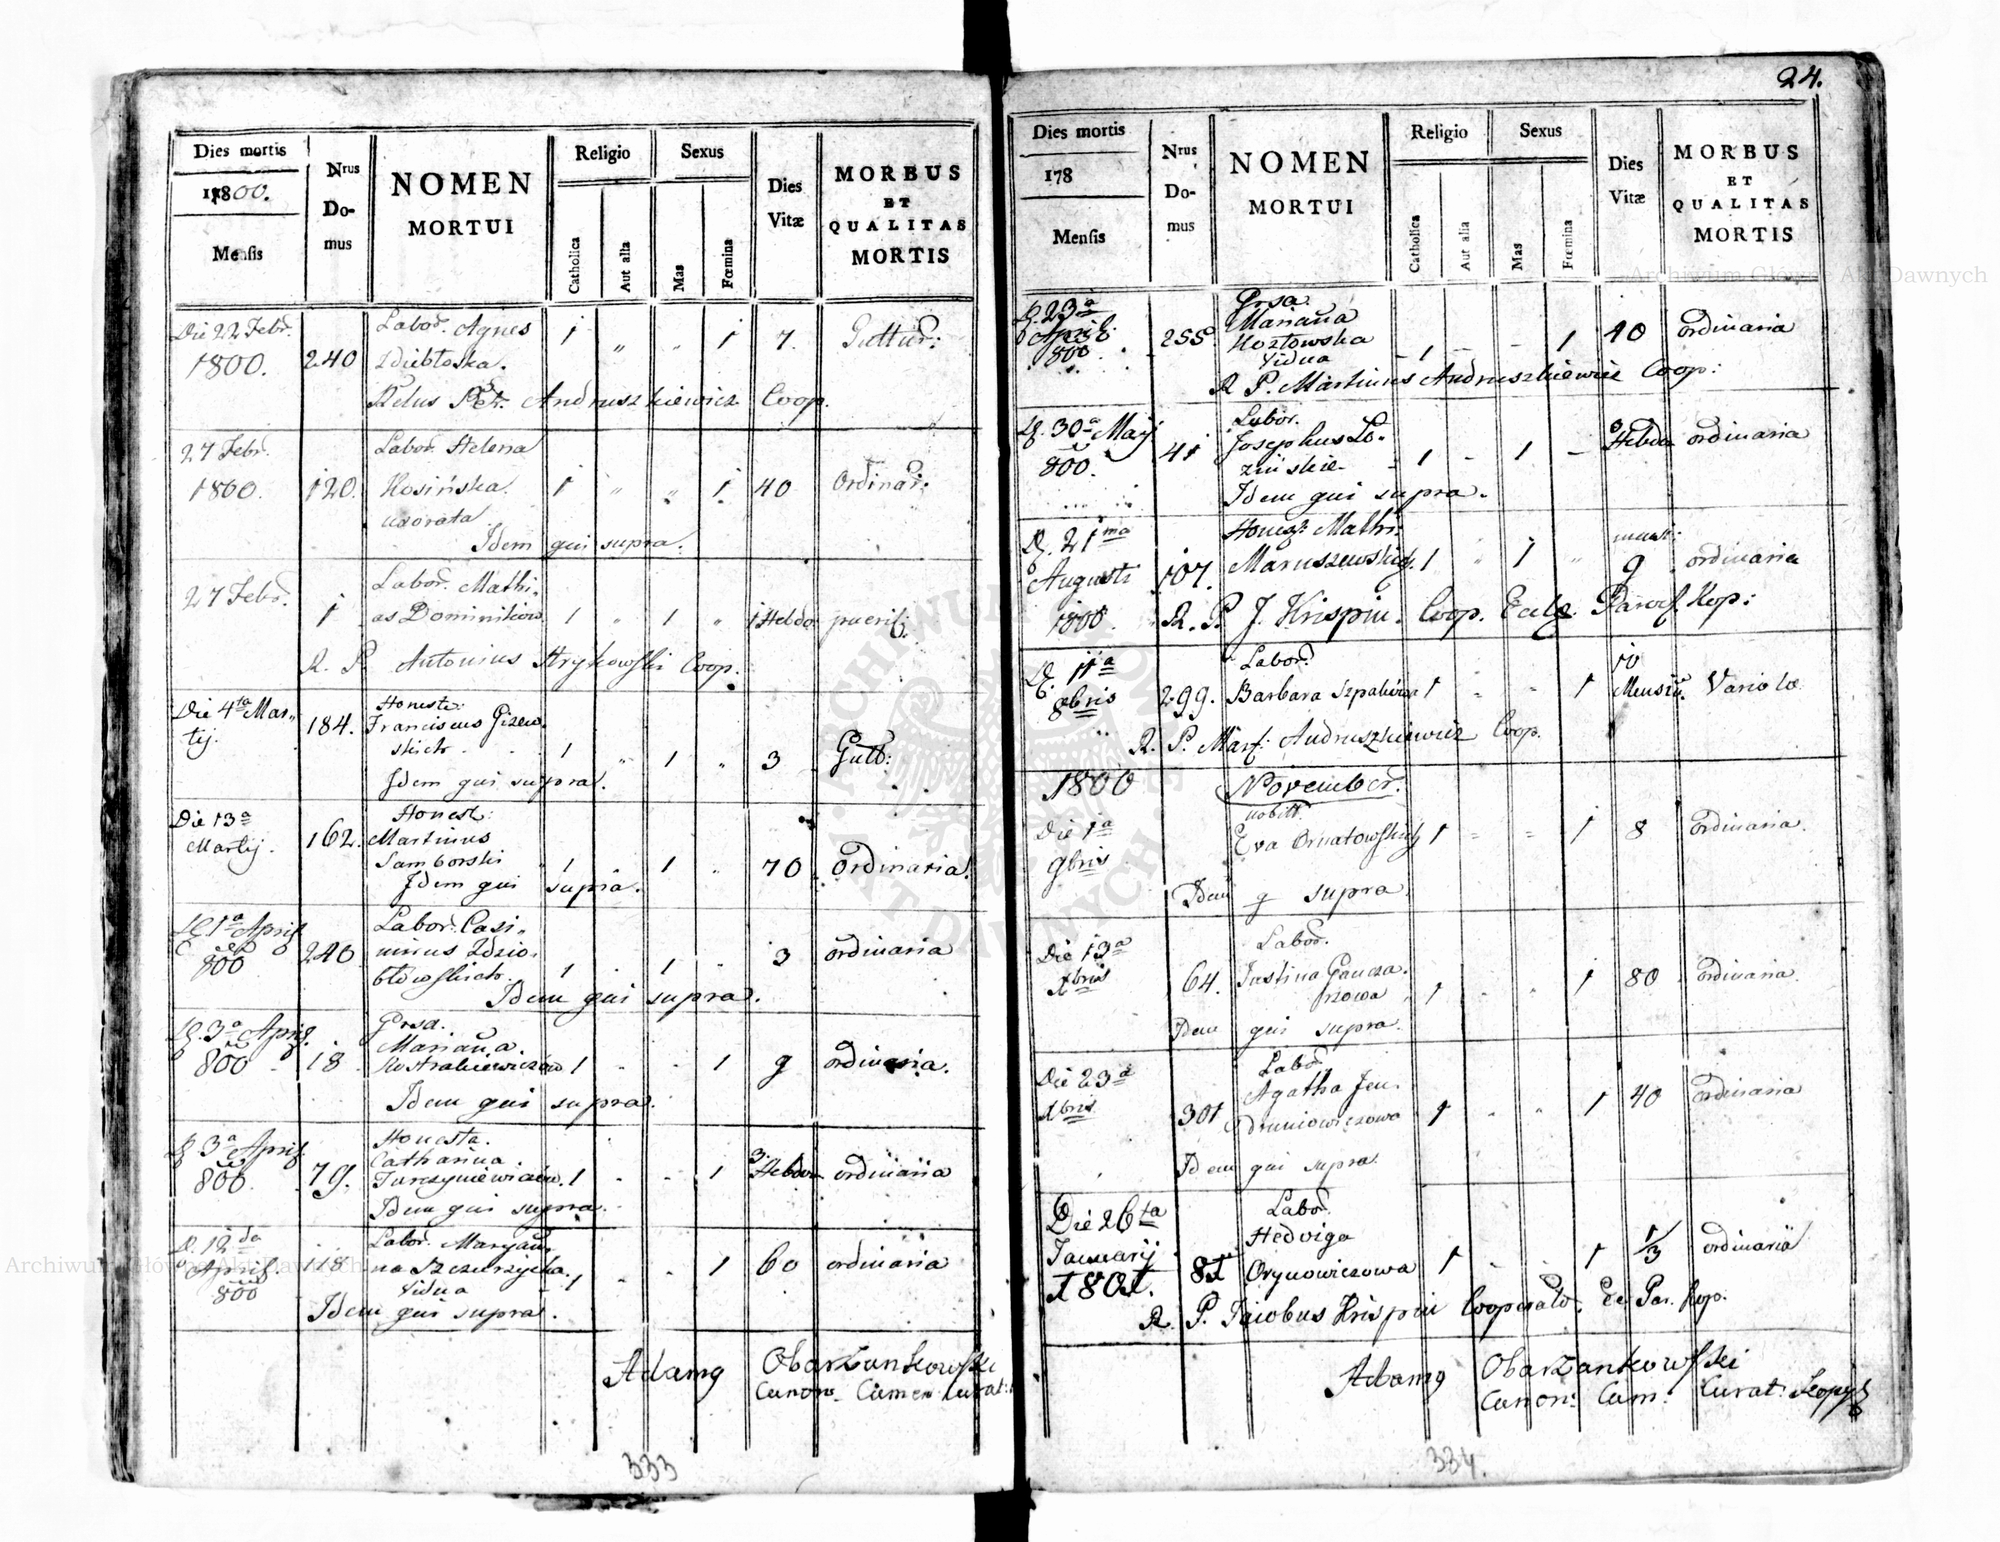 Dies mortis
1800.
Mensis
Nrus Do-mus
NOMEN
MORTUI
Religio
Catholica
Aut alia
Sexus
Mas
Fœmina
Dies
Vitæ
MORBUS
ET
QUALITAS
MORTIS
Die 22 Febr. Labor. Agnes 1 „ „ 1 7. Guttur:
1800. 240
Andruszkiewicz Coop.
27 Febr. Labor. Helena
1800. 120. Kosińska. 1 „ „ 1. 40 Ordinar:
uxorata
Idem qui supra.
27 Febr. Labor. Mathi„
1 as Dominikow 1 „ 1 „ 1 Hebdo pueril:
R. P. Antonius Strykowski Coop.
Die 4ta Mar„ Honeste:
tij. 184. Franciscus Gizew„
skich 1 „ 1 „ 3 Gutt:
Idem qui supra.
Die 13a Honest:
Martij. 162. Martinus
Samborski 1 „ 1 „ 70 Ordinaria.
Idem qui supra.
D. 1a April. Labor. Casi„
800 240 mirus Zdzio„ 3 ordinaria
błowskich. 1 . 1 .
Idem qui supra.
D. 3a April. Grsa.
Marianna.
800 18 1 . . 1 9 ordinaria.
Idem qui supra.
D. 3a April. Honesta.
Catharina. 3.
800. 79. 1 . . 1 Hebdo ordinaria
Idem qui supra.
D. 12da Labor. Maryan„
April. 118 na Szczurzycka. 1 . . 1 60 ordinaria
800 Vidua
Idem qui supra.
Adamg Obarzankowski
Canon: Camen Curat:
333
24.
Dies mortis
178
Mensis
Nrus Do-mus
NOMEN
MORTUI
Religio
Catholica
Aut alia
Sexus
Mas
Fœmina
Dies
Vitæ
MORBUS
ET
QUALITAS
MORTIS
D. 23a Grsa.
April. 255 Marianna
800 Kozłowska 1 – – 1 40 ordinaria
Vidua
R. P. Martinus Andruszkiewicz Coop:
D. 30a Maij Labor. 3
800. 41 Josephus Lo- 1 – 1 – Hebdo ordinaria
zinskie
Idem qui supra.
D. 21ma Honest: Mathi:
Augusti 107. Maruszewskich. 1 „ 1 „ 9 ordinaria
1800. R. P. J. Krispin. Coop. Eccle. Paroch. Kop:
D. 11a Labor. 10
8bris 299. Barbara Szpakowa 1 „ „ 1 Mensiu. Variolæ
R. P. Mart: Andruszkiewicz Coop.
1800 November.
Die 1a nobill.
9bris Eva Ornatowskich 1 = = 1 8 ordinaria.
Idem q supra.
Die 13a Labor.
Xbris 64. Justina Gancza. 1 „ „ 1 80 ordinaria
rzowa
Idem qui supra.
Die 23a Labor.
Xbris 301 Agatha Jen. 1 „ „ 1 40 ordinaria
druniowiczowa
Idem qui supra.
Die 26ta Labor.
Januarij Hedviga
1801. 81 Orynowiczowa 1 . . 1 1/3 ordinaria
R. P. Jacobus Krispin Cooperato. Ec. Par. Kop.
Adamg Obarzankowski
Canon: Cam: Curat: Kopyl
334.
Archiwum Główne Akt Dawnych
Archiwum Główne Akt Dawnych
ARCHIWUM GŁÓWNE AKT DAWNYCH